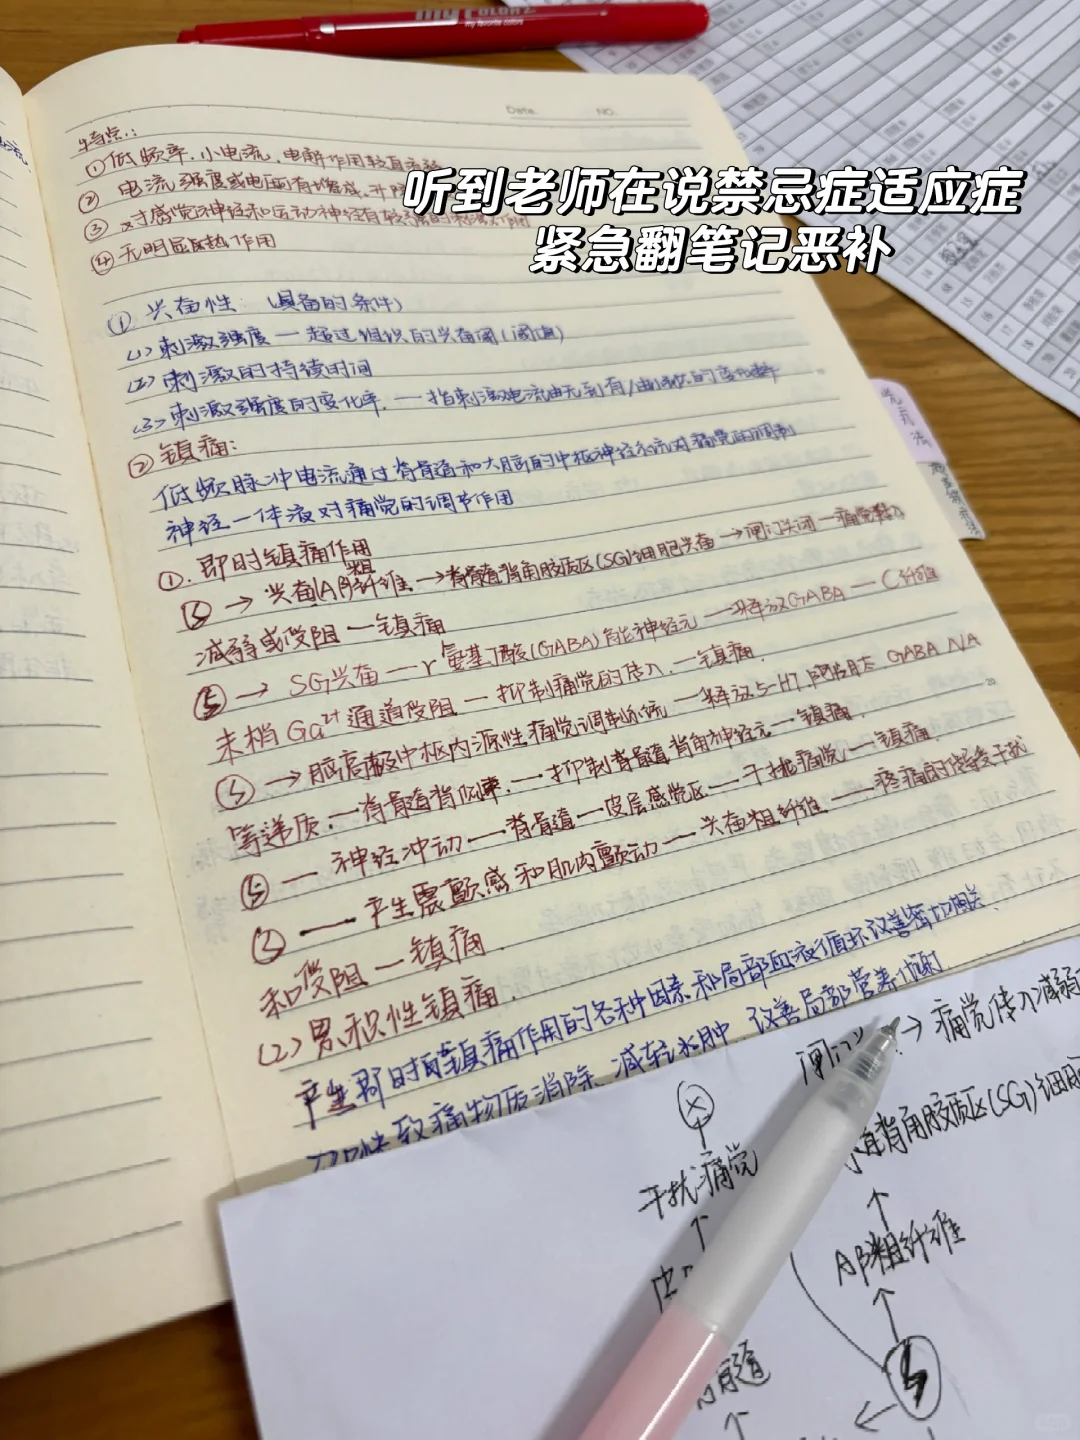 my favorite colors
Date.
NO.
特点:
①低频率,小电流,电解作用较直
②电流强度或电压有
③对感觉神经和运动神经有较强的刺激作用
④无明显热作用
听到老师在说禁忌症适应症
紧急翻笔记恶补
①兴奋性:(具备的条件)
(1)刺激强度—超过组织的兴奋阈(阈值)
(2)刺激的持续时间
(3)刺激强度的变化率.—指刺激电流由无到有/由小到大的变化速率
②镇痛:
低频脉冲电流通过脊髓和大脑的中枢神经系统对痛觉的调制
神经—体液对痛觉的调节作用
①.即时镇痛作用
→兴奋Aβ粗纤维→脊髓背角胶质区(SG)细胞兴奋→闸门关闭—痛觉传入
减弱或受阻—镇痛
→SG兴奋—r氨基丁酸(GABA)能神经元—释放GABA—C纤维
末梢Ga²⁺通道受阻—抑制痛觉的传入.—镇痛.
→脑高级中枢内源性痛觉调制系统—释放5-HT 阿片肽 GABA N/A
等递质.—脊髓背侧束.—抑制脊髓背角神经元—镇痛.
—神经冲动—脊髓—皮层感觉区—干扰痛觉—镇痛.
—产生震颤感和肌肉颤动—兴奋粗纤维—疼痛的传导受干扰
和受阻—镇痛.
(2)累积性镇痛.
产生即时镇痛作用的各种因素和局部血液循环改善密切相关
致痛物质消除、减轻水肿、改善局部营养代谢
→痛觉传入减弱
背角胶质区(SG)细胞
干扰痛觉
Aβ粗纤维
脊髓